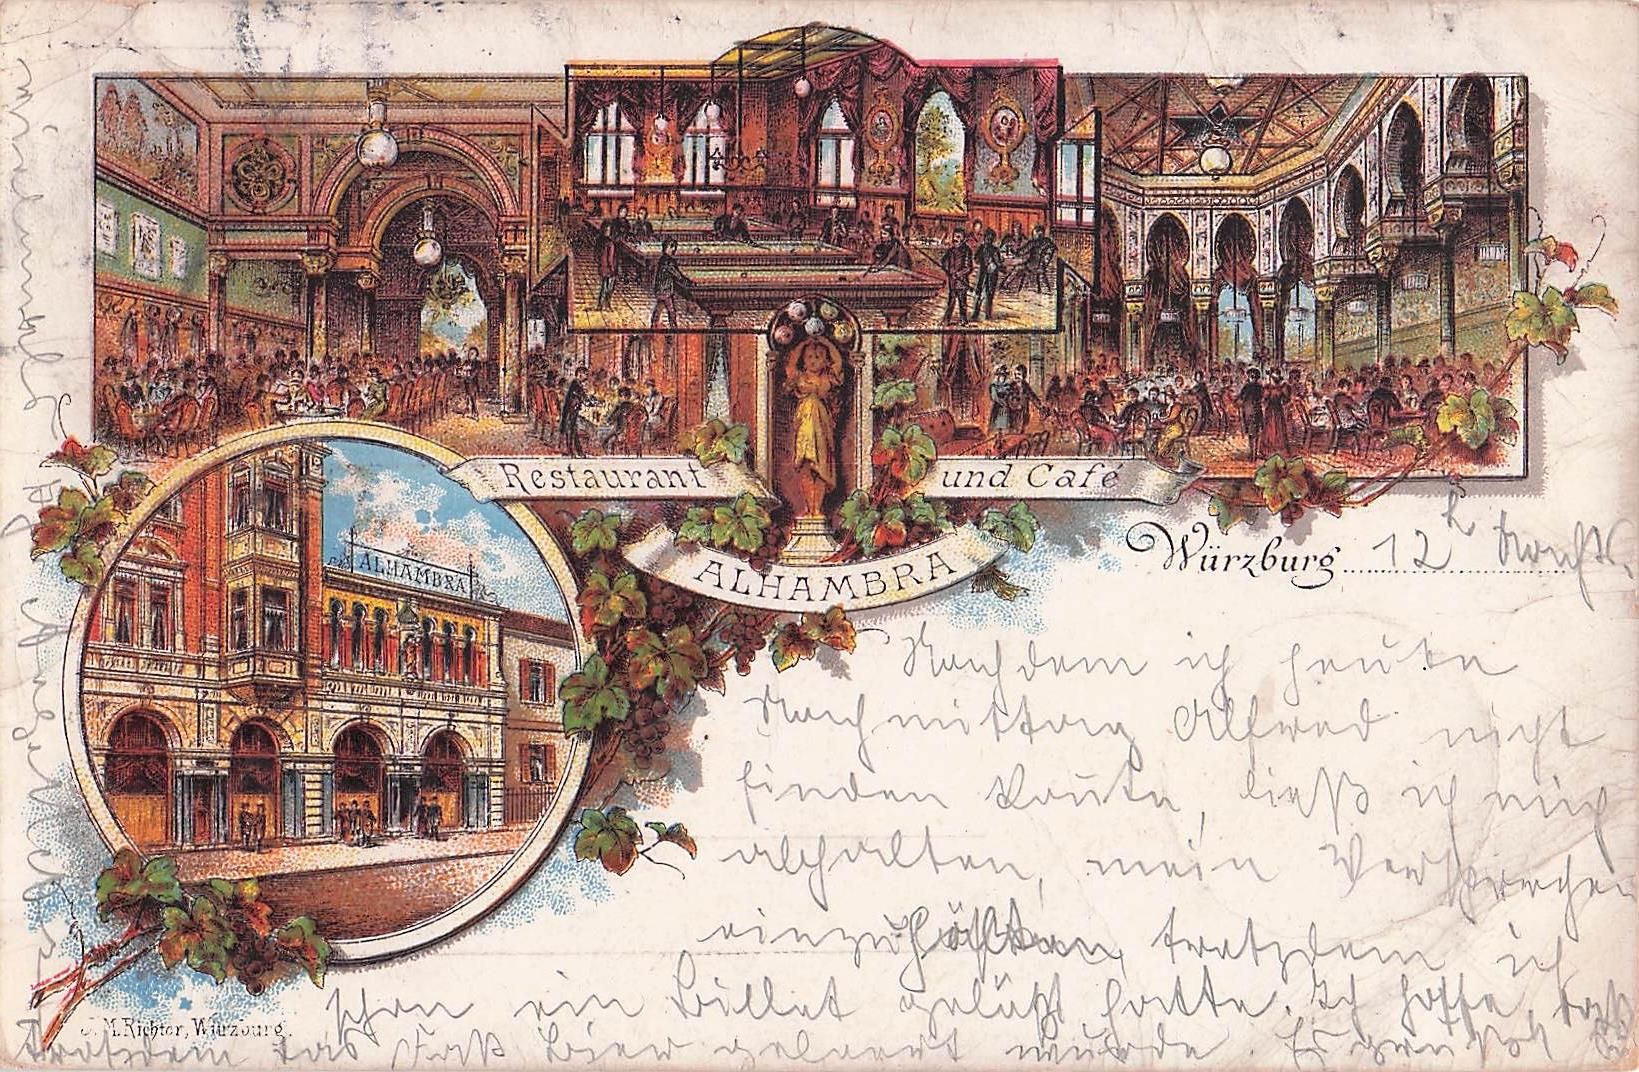 Restaurant und Café
ALHAMBRA
ALHAMBRA
Würzburg 12h Nachts.
Nachdem ich heute
Nachmittag Alfred nicht
finden konnte, ließ ich mich
abhalten, mein Versprechen
einzuhalten, trotzdem ich
schon ein Billet gelößt hatte. Ich hoffe, daß
trotzdem das Faß Bier geleert wurde. Es grüßt
J. M. Richter, Würzburg.